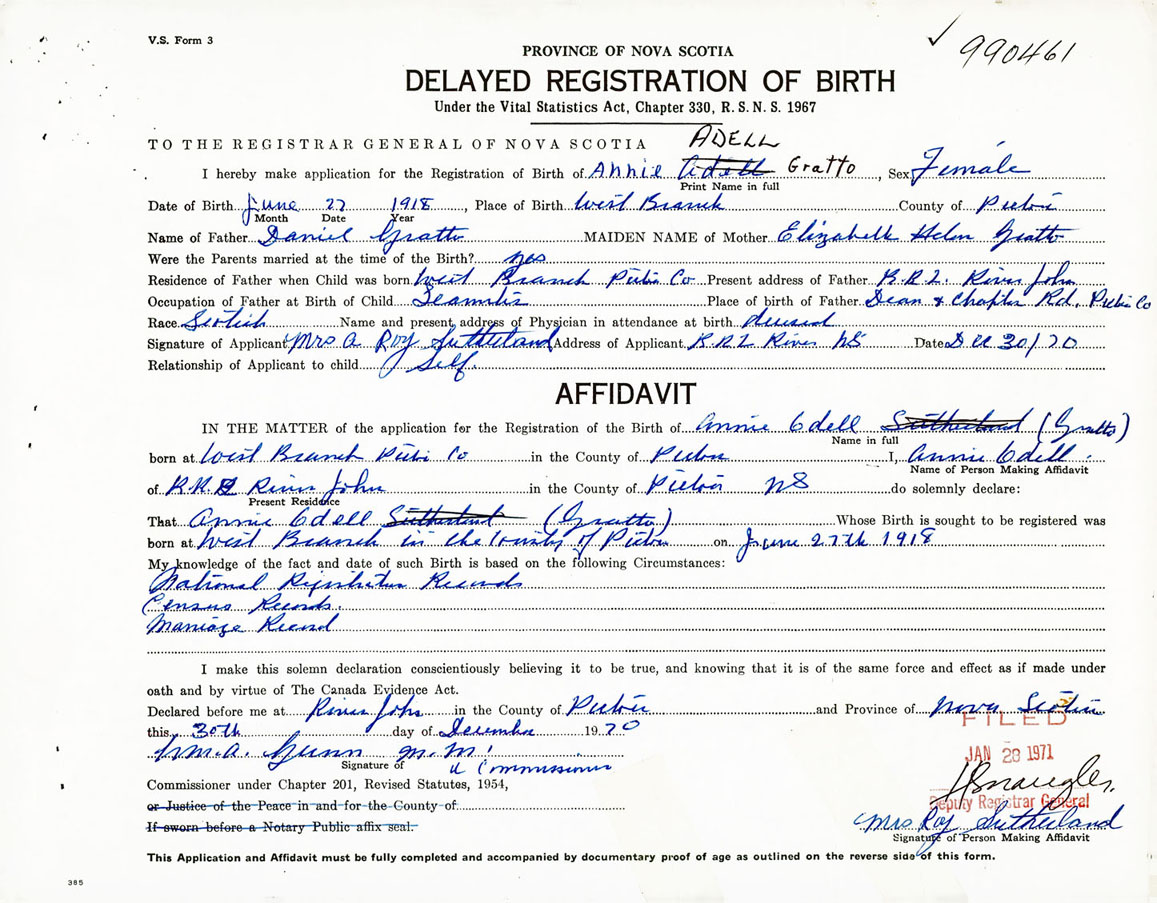 V.S. Form 3
990461
PROVINCE OF NOVA SCOTIA
DELAYED REGISTRATION OF BIRTH
Under the Vital Statistics Act, Chapter 330, R.S.N.S. 1967
TO THE REGISTRAR GENERAL OF NOVA SCOTIA ADELL
I hereby make application for the Registration of Birth of Annie Adell Gratto, Sex Female
Print Name in full
Date of Birth June 27 1918, Place of Birth West Branch County of Pictou
Month Date Year
Name of Father Daniel Gratto MAIDEN NAME of Mother Elizabeth Helen Gratto
Were the Parents married at the time of the Birth? yes
Residence of Father when Child was born West Branch Pictou Co Present address of Father R.R.2. River John
Occupation of Father at Birth of Child Place of birth of Father Dean & Chapter Rd. Pictou Co
Race Scotish Name and present address of Physician in attendance at birth deceased
Signature of Applicant Mrs A Roy Sutherland Address of Applicant R.R.2 River NS Date Dec 30/70
Relationship of Applicant to child Self.
AFFIDAVIT
IN THE MATTER of the application for the Registration of the Birth of Annie Edell Sutherland (Gratto)
Name in full
born at West Branch Pictou Co in the County of Pictou I, Annie Edell
Name of Person Making Affidavit
of R.R. 2 River John in the County of Pictou NS do solemnly declare:
Present Residence
That Annie Edell Sutherland (Gratto) Whose Birth is sought to be registered was
born at West Branch in the County of Pictou on June 27th 1918
My knowledge of the fact and date of such Birth is based on the following Circumstances:
National Registration Records
Census Records.
Marriage Record
I make this solemn declaration conscientiously believing it to be true, and knowing that it is of the same force and effect as if made under
oath and by virtue of The Canada Evidence Act.
Declared before me at River John in the County of Pictou and Province of Nova Scotia
FILED
this 30th day of December 1970
JAN 28 1971
Wm. A. Gunn M.M.
Signature of a Commissioner
Commissioner under Chapter 201, Revised Statutes, 1954,
or Justice of the Peace in and for the County of
Deputy Registrar General
If sworn before a Notary Public affix seal.
Mrs Roy Sutherland
Signature of Person Making Affidavit
This Application and Affidavit must be fully completed and accompanied by documentary proof of age as outlined on the reverse side of this form.
385